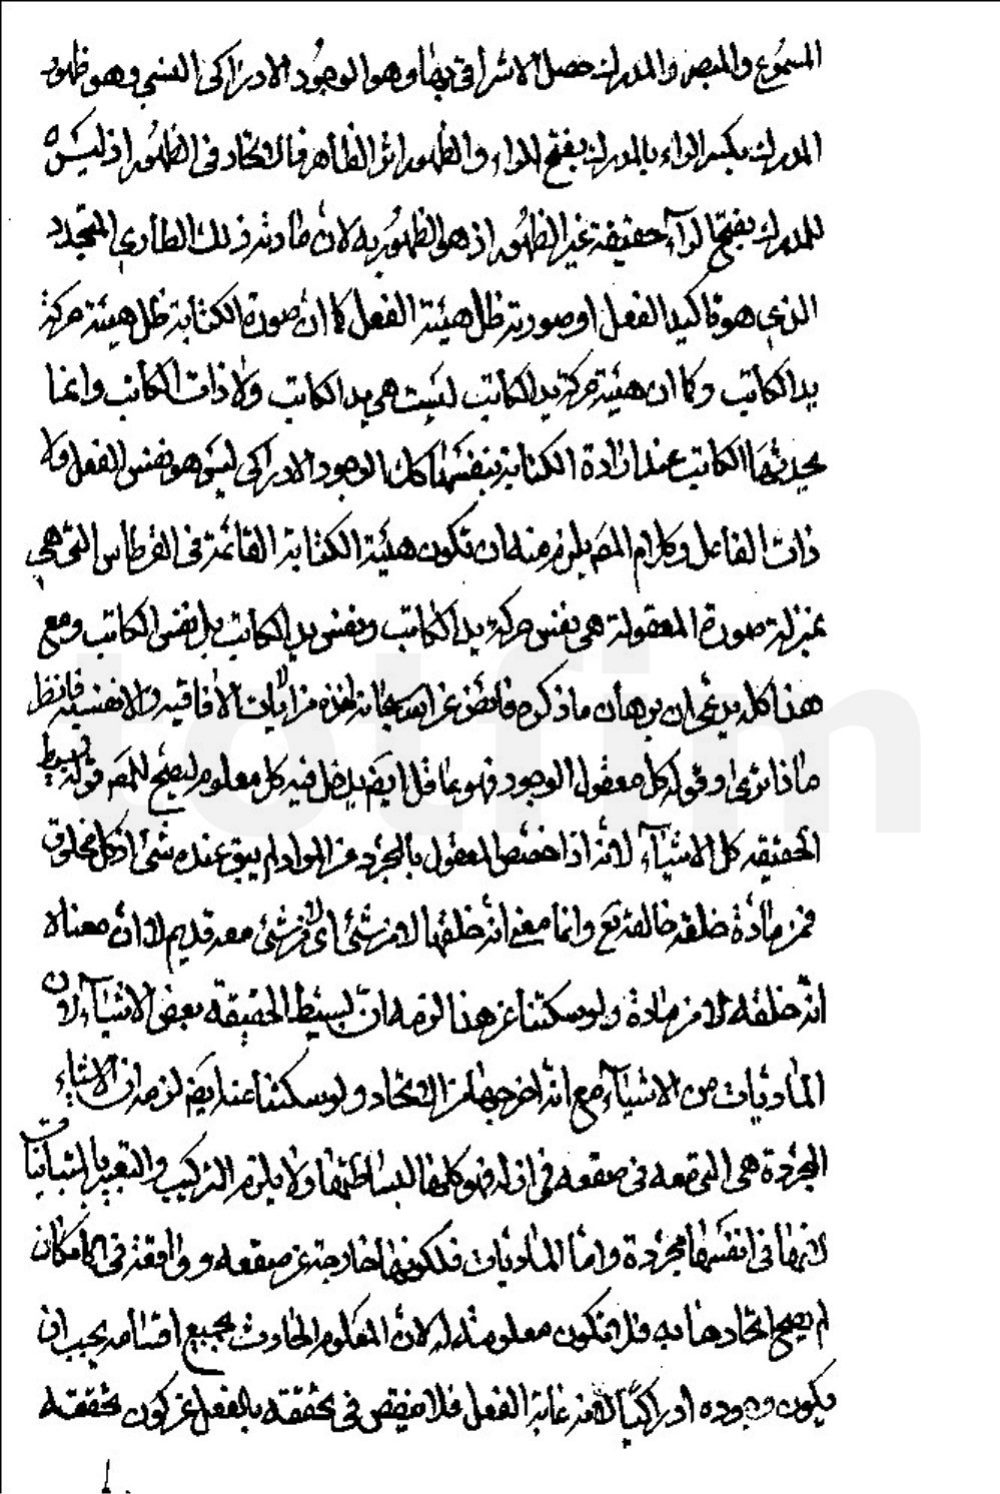 المسموع والمبصر والمدرك حصل الاشراق بها وهو الوجود الادراكى النسبي وهو ظهور
المدرك بكسر الراء بالمدرك بفتح الراء والظهور اثر الظاهر فالاتحاد فى الظهور اذ ليس
للمدرك بفتح الرآء حقيقة غير الظهور اذ هو الظهور به لان مادته ذلك الطارى المتجدد
الذى هو تاكيد الفعل وصورته ظل هيئة الفعل كما ان صورة الكتابة ظل هيئة حركة
يد الكاتب وكما ان هيئة حركة يد الكاتب ليست هى يد الكاتب ولا ذات الكاتب وانما
يحدثها الكاتب عند ارادة الكتابة بنفسها كك الوجود الادراكى ليس هو نفس الفعل ولا
ذات الفاعل وكلام المص يلزم منه ان تكون هيئة الكتابة القائمة فى القرطاس التى هى
بمنزلة صورة المعقولة هى نفس حركة يد الكاتب ونفس يد الكاتب بل نفس الكاتب ومع
هذا كله يدعى ان برهان ما ذكره فائض عن الله سبحانه اخذه من الايات الافاقية والانفسية فانظر
ما ذا ترى وقوله كل معقول الوجود فهو عاقل ايض يدخل فيه كل معلوم ليصح للمص قوله بسيط
الحقيقه كل الاشيآء لانه اذا خصص المعقول بالمجرد من المواد لم يبق عنده شئ اذ كل مخلوق
فمن مادة خلقه خالقه تع وانما معنى انه خلقها لا من شئ اى لا من شئ معه قديم لا ان معناه
انه خلقه لا من مادة ولو سكتنا عن هذا لزمه ان بسيط الحقيقة بعض الاشيآء لان
الماديات من الاشيآء مع انه اخرجها من الاتحاد ولو سكتنا عنه ايض لزمه ان الاشياء
المجردة هى التى معه فى صقعه فى ازله فهو كلها لبساطتها ولا يلزم التركيب والتعبير بالمتباينات
لانها فى انفسها مجردة واما الماديات فلكونها خارجة عن صقعه وواقعة فى الامكان
لم يصح اتحادها به فلا تكون معلومة له لان المعلوم الحادث بجميع اقسامه يجب ان
يكون وجوده ادراكيا لانه غاية الفعل فلا ينقص فى تحققه بالفعل عن كون تحققه